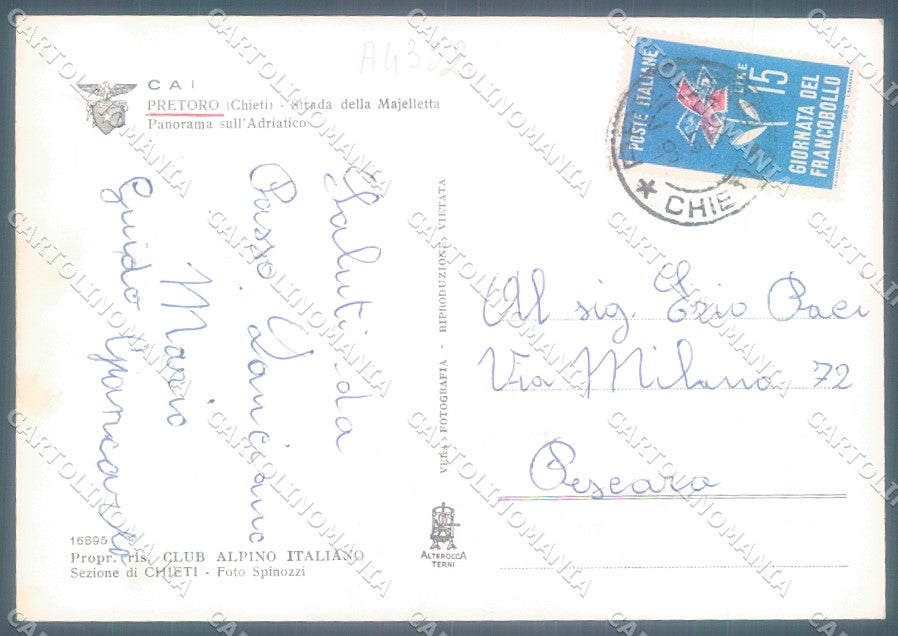 A4392
CAI
PRETORO (Chieti) - Strada della Majelletta
Panorama sull'Adriatico
Saluti da
Passo Lanciano
Mario
Guido Giancarlo
16895
Propr. ris. CLUB ALPINO ITALIANO
Sezione di CHIETI - Foto Spinozzi
VERA FOTOGRAFIA - RIPRODUZIONE VIETATA
ALTEROCCA
TERNI
POSTE ITALIANE
LIRE 15
GIORNATA DEL
FRANCOBOLLO
CHIETI
Al sig. Ezio Paci
Via Milano 72
Pescara
CARTOLINOMANIA